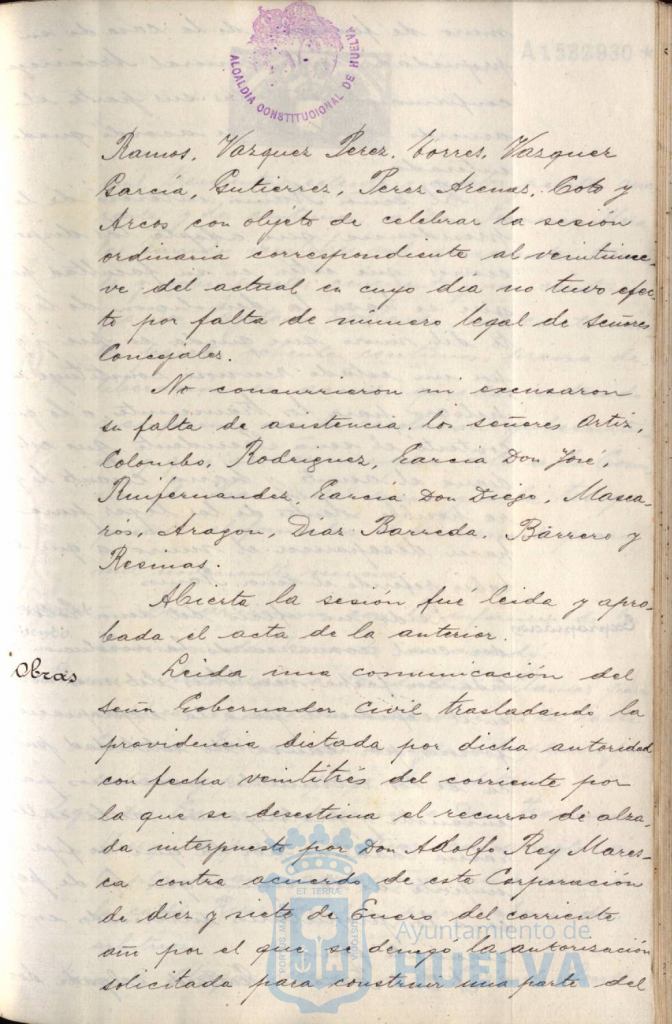 ALCALDIA CONSTITUCIONAL DE HUELVA
A1532930 *
Ramos, Vazquez Perez, Torres, Vazquez
Garcia, Gutierrez, Perez Arenas, Coto y
Arcos con objeto de celebrar la sesión
ordinaria correspondiente al veintinue-
ve del actual en cuyo dia no tuvo efec-
to por falta de número legal de señores
Concejales.
No concurrieron ni excusaron
su falta de asistencia, los señores Ortiz,
Colombo, Rodriguez, Garcia Don José,
Ruifernandez, Garcia Don Diego, Masca-
rós, Aragon, Diaz Barreda, Barrero y
Resinas.
Abierta la sesión fué leida y apro-
bada el acta de la anterior.
Obras
Leida una comunicación del
señor Gobernador Civil trasladando la
providencia dictada por dicha autoridad
con fecha veintitrés del corriente por
la que se desestima el recurso de alza-
da interpuesto por Don Adolfo Rey Mares-
ca contra acuerdo de esta Corporación
de diez y siete de Enero del corriente
año por el que se denegó la autorización
solicitada para construir una parte del
Ayuntamiento de
HUELVA